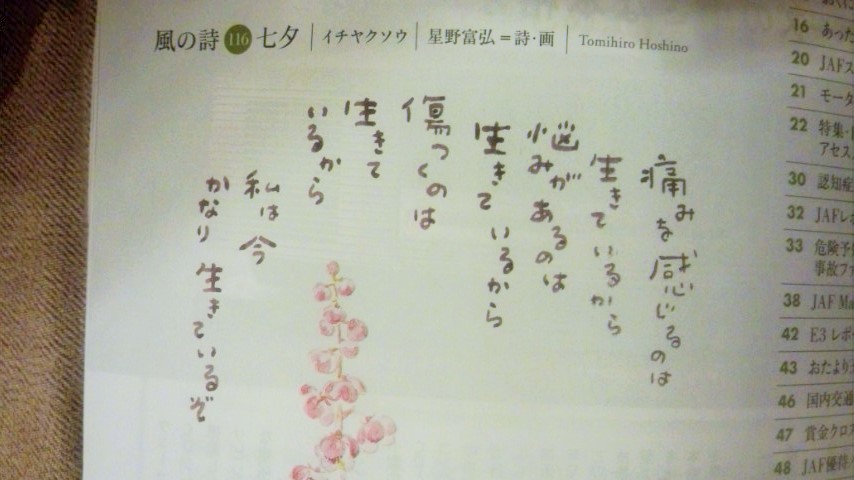 風の詩 116 七夕 | イチヤクソウ | 星野富弘=詩・画 | Tomihiro Hoshino
痛みを感じるのは
生きているから
悩みがあるのは
生きているから
傷つくのは
生きて
いるから
私は今
かなり生きているぞ
16 あった
20 JAFス
21 モータ
22 特集・
アセス
30 認知症
32 JAFレポ
33 危険予
事故ファ
38 JAF Ma
42 E3レポー
43 おたより
46 国内交通
47 賞金クロス
48 JAF優待